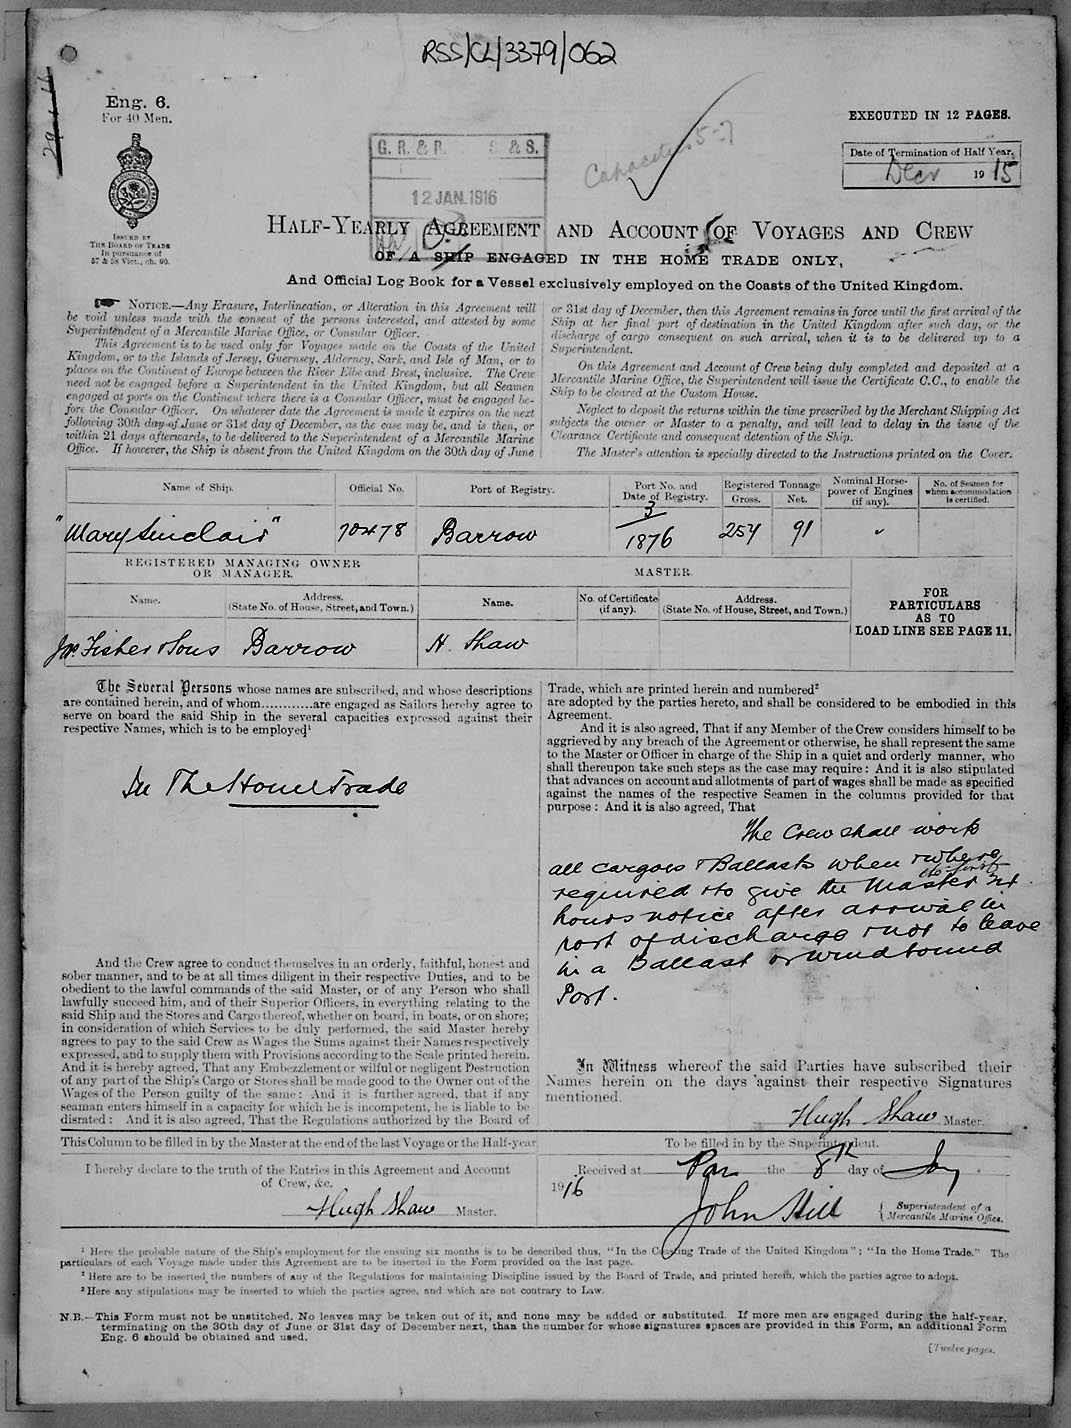 RSS/CL/3379/062
Eng. 6.
For 40 Men.
EXECUTED IN 12 PAGES.
G. R. & R. S. & S.
12 JAN. 1916
Capacities 5-7
Date of Termination of Half Year.
Decr 19 15
ISSUED BY
THE BOARD OF TRADE
In pursuance of
57 & 58 Vict., ch. 60.
HALF-YEARLY AGREEMENT AND ACCOUNT OF VOYAGES AND CREW
OF A SHIP ENGAGED IN THE HOME TRADE ONLY,
And Official Log Book for a Vessel exclusively employed on the Coasts of the United Kingdom.
NOTICE.—Any Erasure, Interlineation, or Alteration in this Agreement will
be void unless made with the consent of the persons interested, and attested by some
Superintendent of a Mercantile Marine Office, or Consular Officer.
This Agreement is to be used only for Voyages made on the Coasts of the United
Kingdom, or to the Islands of Jersey, Guernsey, Alderney, Sark, and Isle of Man, or to
places on the Continent of Europe between the River Elbe and Brest, inclusive. The Crew
need not be engaged before a Superintendent in the United Kingdom, but all Seamen
engaged at ports on the Continent where there is a Consular Officer, must be engaged be-
fore the Consular Officer. On whatever date the Agreement is made it expires on the next
following 30th day of June or 31st day of December, as the case may be, and is then, or
within 21 days afterwards, to be delivered to the Superintendent of a Mercantile Marine
Office. If however, the Ship is absent from the United Kingdom on the 30th day of June
or 31st day of December, then this Agreement remains in force until the first arrival of the
Ship at her final port of destination in the United Kingdom after such day, or the
discharge of cargo consequent on such arrival, when it is to be delivered up to a
Superintendent.
On this Agreement and Account of Crew being duly completed and deposited at a
Mercantile Marine Office, the Superintendent will issue the Certificate C.C., to enable the
Ship to be cleared at the Custom House.
Neglect to deposit the returns within the time prescribed by the Merchant Shipping Act
subjects the owner or Master to a penalty, and will lead to delay in the issue of the
Clearance Certificate and consequent detention of the Ship.
The Master's attention is specially directed to the Instructions printed on the Cover.
Name of Ship. Official No. Port of Registry. Port No. and Date of Registry. Registered Tonnage Gross. Net. Nominal Horse-power of Engines (if any). No. of Seamen for whom accommodation is certified.
"Mary Sinclair" 70478 Barrow 3/1876 254 91 "
REGISTERED MANAGING OWNER
OR MANAGER.
MASTER.
Name. Address. (State No. of House, Street, and Town.) Name. No. of Certificate (if any). Address. (State No. of House, Street, and Town.)
FOR
PARTICULARS
AS TO
LOAD LINE SEE PAGE 11.
Jas. Fisher & Sons Barrow H. Shaw
The Several Persons whose names are subscribed, and whose descriptions
are contained herein, and of whom............are engaged as Sailors hereby agree to
serve on board the said Ship in the several capacities expressed against their
respective Names, which is to be employed¹
In The Home Trade
And the Crew agree to conduct themselves in an orderly, faithful, honest and
sober manner, and to be at all times diligent in their respective Duties, and to be
obedient to the lawful commands of the said Master, or of any Person who shall
lawfully succeed him, and of their Superior Officers, in everything relating to the
said Ship and the Stores and Cargo thereof, whether on board, in boats, or on shore;
in consideration of which Services to be duly performed, the said Master hereby
agrees to pay to the said Crew as Wages the Sums against their Names respectively
expressed, and to supply them with Provisions according to the Scale printed herein.
And it is hereby agreed, That any Embezzlement or wilful or negligent Destruction
of any part of the Ship's Cargo or Stores shall be made good to the Owner out of the
Wages of the Person guilty of the same: And it is further agreed, that if any
seaman enters himself in a capacity for which he is incompetent, he is liable to be
disrated: And it is also agreed, That the Regulations authorized by the Board of
Trade, which are printed herein and numbered²
are adopted by the parties hereto, and shall be considered to be embodied in this
Agreement.
And it is also agreed, That if any Member of the Crew considers himself to be
aggrieved by any breach of the Agreement or otherwise, he shall represent the same
to the Master or Officer in charge of the Ship in a quiet and orderly manner, who
shall thereupon take such steps as the case may require: And it is also stipulated
that advances on account and allotments of part of wages shall be made as specified
against the names of the respective Seamen in the columns provided for that
purpose: And it is also agreed, That
The Crew shall work
all cargoes & Ballasts when & where
required & to give the Master 24
hours notice after arrival in
port of discharge & not to leave
in a Ballast or windbound
Port.
In Witness whereof the said Parties have subscribed their
Names herein on the days against their respective Signatures
mentioned.
Hugh Shaw Master.
This Column to be filled in by the Master at the end of the last Voyage or the Half-year
I hereby declare to the truth of the Entries in this Agreement and Account
of Crew, &c.
Hugh Shaw Master.
To be filled in by the Superintendent.
Received at the 8th day of Jay
1916
John Hill Superintendent of a Mercantile Marine Office.
¹ Here the probable nature of the Ship's employment for the ensuing six months is to be described thus, "In the Coasting Trade of the United Kingdom"; "In the Home Trade." The
particulars of each Voyage made under this Agreement are to be inserted in the Form provided on the last page.
² Here are to be inserted the numbers of any of the Regulations for maintaining Discipline issued by the Board of Trade, and printed herein, which the parties agree to adopt.
³ Here any stipulations may be inserted to which the parties agree, and which are not contrary to Law.
N.B.—This Form must not be unstitched. No leaves may be taken out of it, and none may be added or substituted. If more men are engaged during the half-year,
terminating on the 30th day of June or 31st day of December next, than the number for whose signatures spaces are provided in this Form, an additional Form
Eng. 6 should be obtained and used.
[Twelve pages.